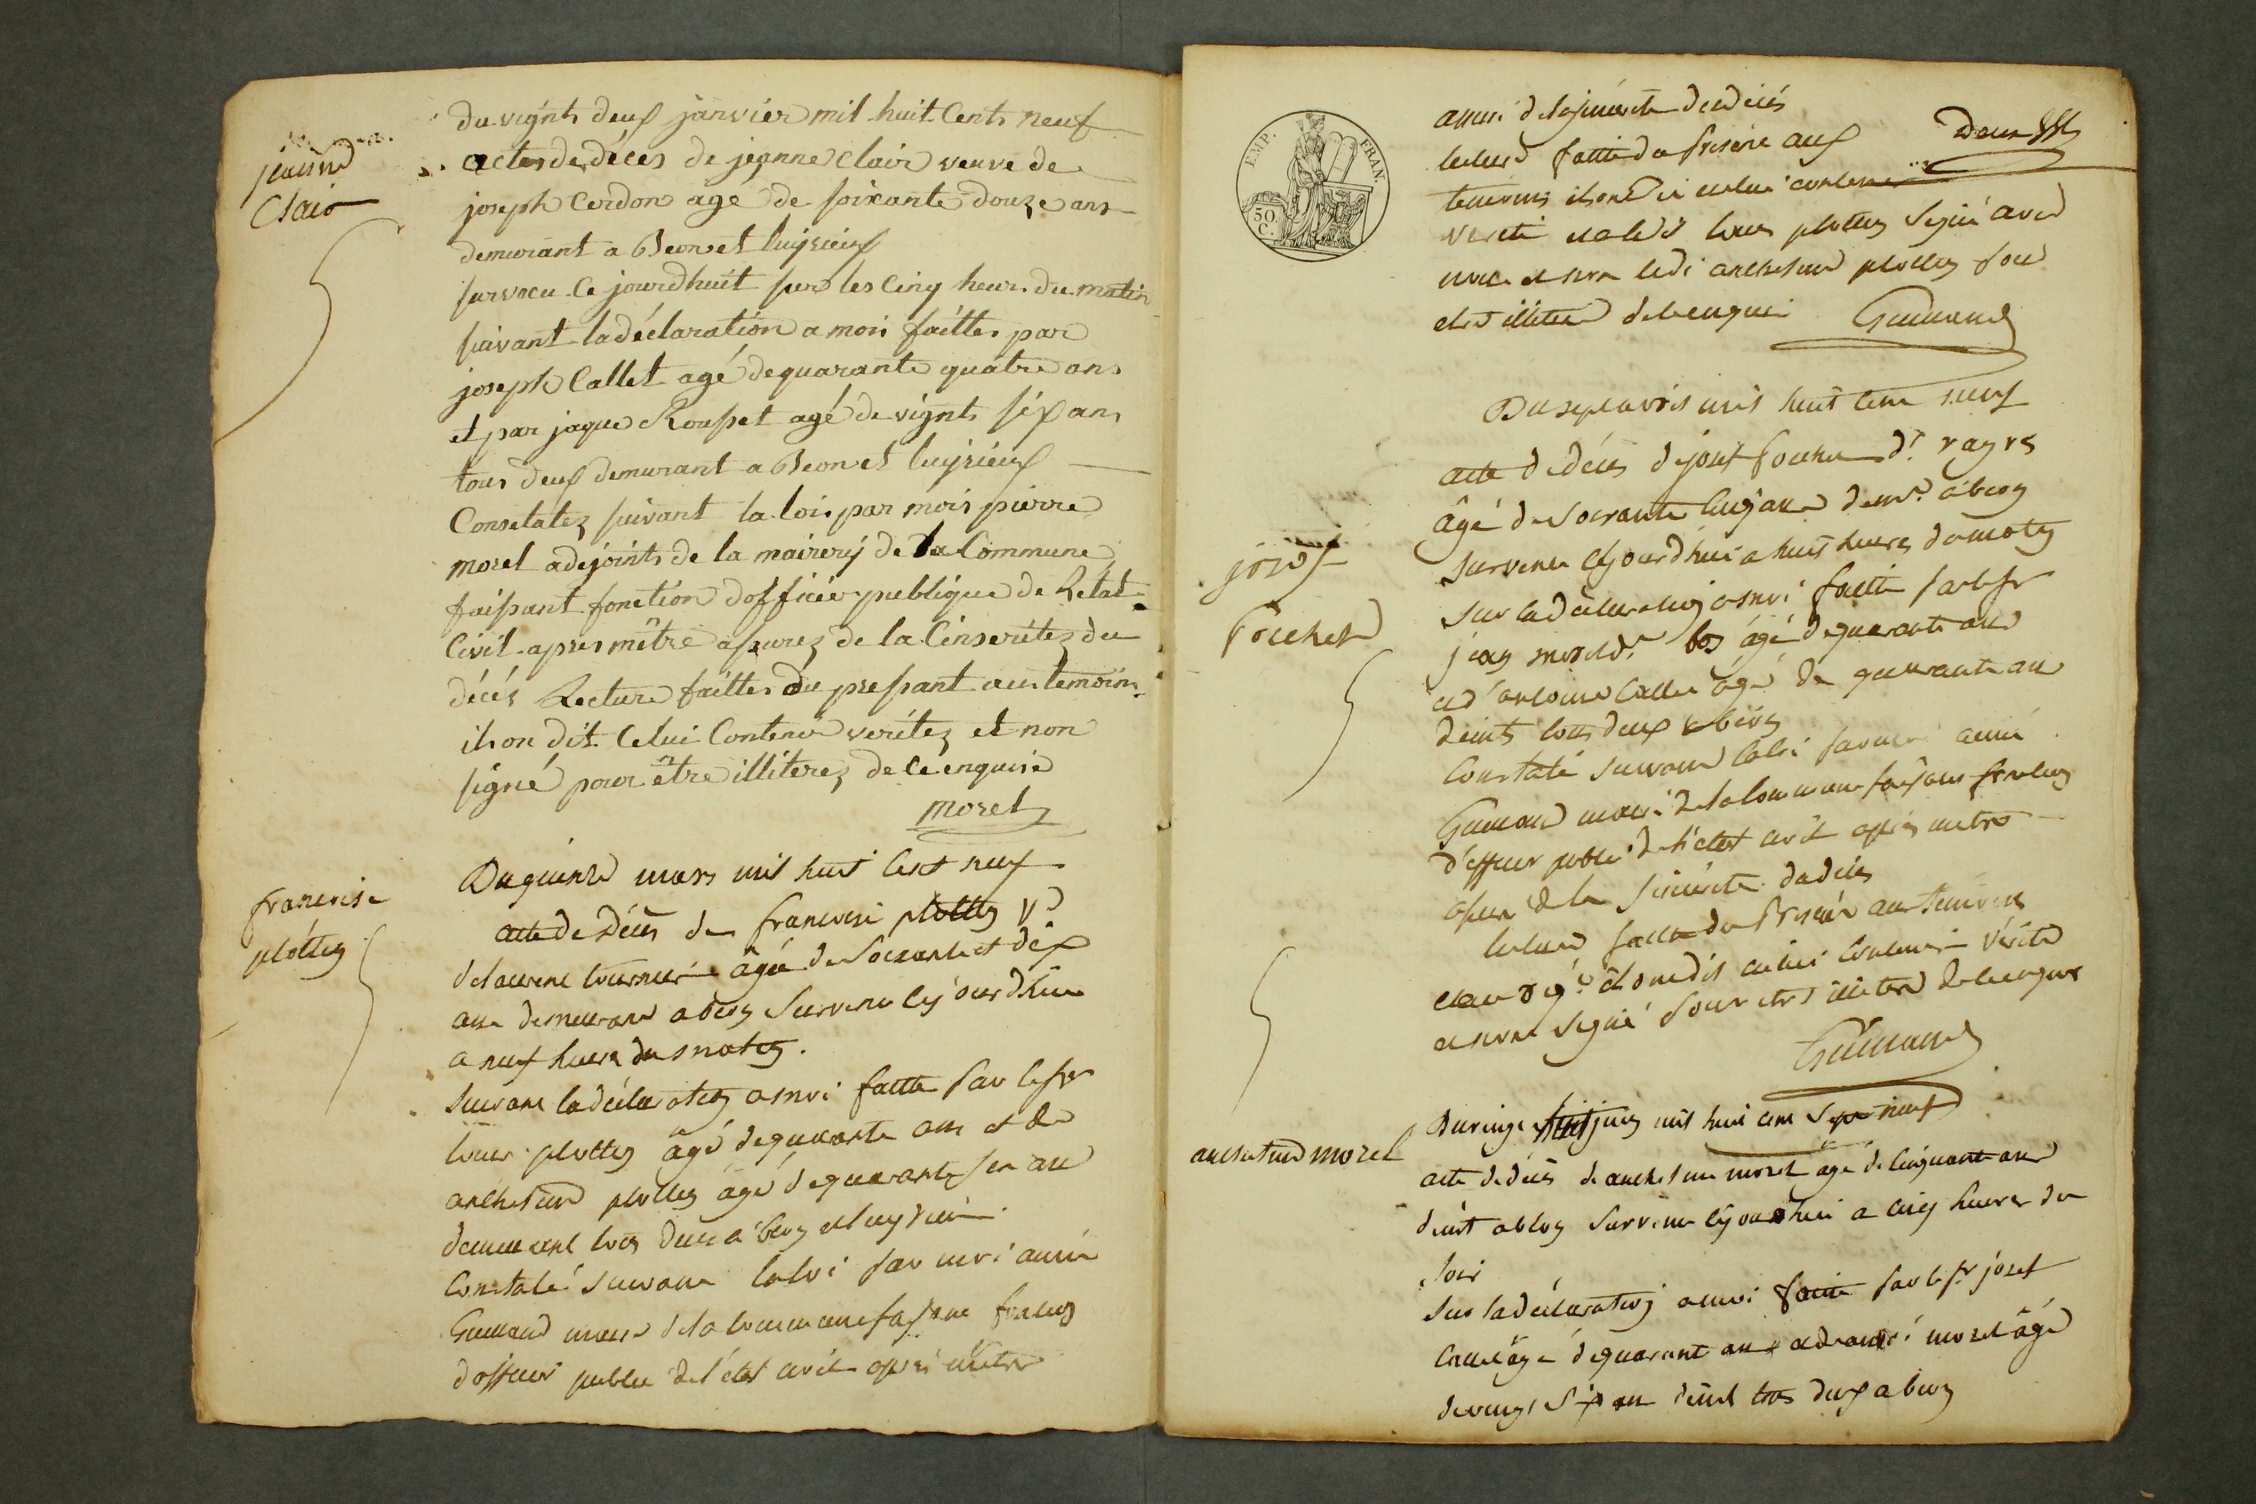 jeanne
Clair
du vignts deux janvier mil huit Cents neuf
actes de déces de jeanne Clair veuve de
joseph Cerdon agé de soixante douze ans
demurant a Beon et luyrieux
survocu Ce jourdhuit sur les Cinq heur du matin
suivant la déclaration a moi faittes par
joseph Callet agé de quarante quatre ans
et par jaque Rousset agé de vignts six ans
tous deux demurant a Beon et luyrieux
Consetatez suivant la loi par mois pierre
morel adejoints de la mairerij de la Commune
faissant fonction dofficier publique de Letat
Civil apres mêtre assurez de la Cinseritez du
décés Lecture faittes du pressant aus temoins
ils on dit Celui Contenir veritez et non
signé pour être illiterez de Ce enquis
morel
francoise
plottey
Du quinze mars mil huit Cent neuf
acte de décès de francoise plottey Ve
de laurent tournier âgée de Soixante et dix
ans demeurant a beoy Survenu cejourdhui
a neuf heure du matey.
Suivant la déclaratioy a moi faitte par le sr
louis plottey âgé de quarante ans et de
anthelme plottey âgé de quarante six ans
demeurant tous deux a beoy et luyrieu
Constaté Suivant la loi par moi aimé
Guimand maire de la Commune faisant fonctioy
d'officier public de l'état civil après mêtre
EMP. FRAN.
50. C.
assuré de la sincerité du décés
lecture faitte du présent aux
temoins ils ont dit celui contenir
verité et le dit louis plottey Signé avec
moi et non le dit anthelme plottey pour
etre illiteré de ce enquis Guimand
Du sept avril mil huit cent neuf
josef
Pochet
acte de décés de josef Pochet dt
âgé de Soixante cinq ans demt. a beoy
Survenu cejourdhui a huit heures du matey
Sur la déclaratioy a moi faitte par le sr
jean morel dt bos âgé de quarante ans
et d'antoine Callet âgé de quarante ans
demts tous deux a beoy
Constaté Suivant la loi par moi aimé
Guimand maire de la Commune faisant fonctioy
d'officier public de l'état civil après mêtre
assuré de la Sincerité du décés
lecture faitte du Présent au temoins
ils ont dit celui Contenir Vérité
et non Signé pour etre illiteré de ce enquis
Guimand
anthelme morel
Du vingt huit juin mil huit cent neuf
acte de décès de anthelme morel âgé de Cinquante ans
demt a beoy Survenu cejourdhui a cinq heures du
Soir
Sur la déclaratioy a moi faitte par le sr josef
Callet âgé de quarante ans et d'andré morel âgé
de vingt Six ans demt tous deux a beoy